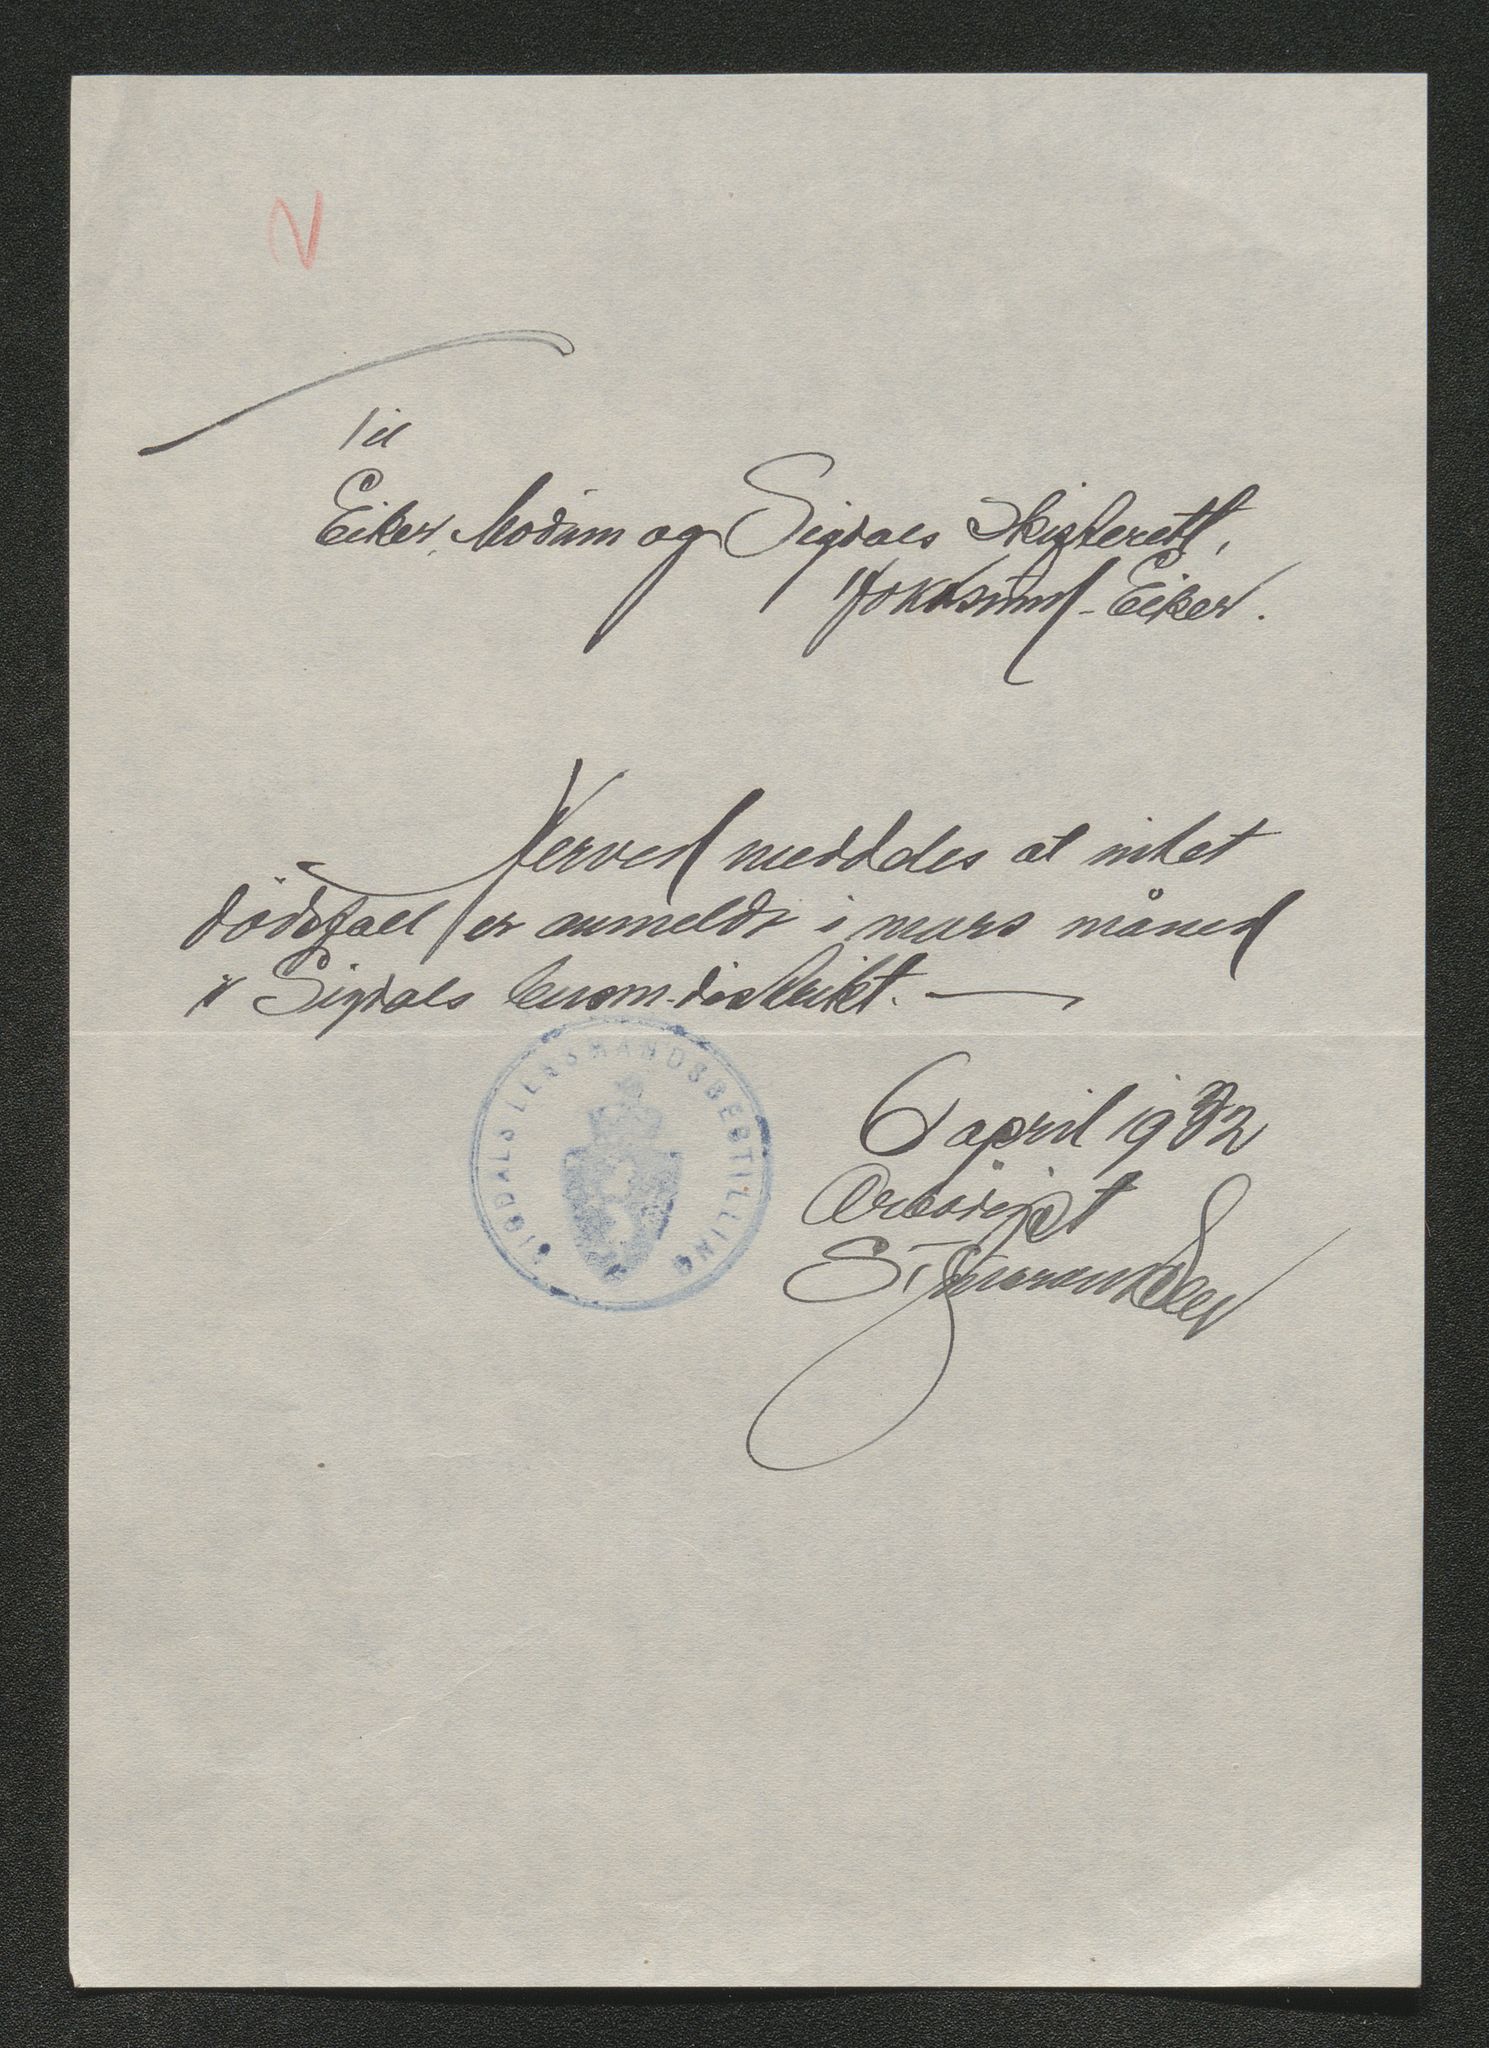 Til
Eiker, Modum og Sigdals Skifterett,
Hokksund - Eiker.
Herved meddeles at intet
dödsfall er anmeldt i mars måned
i Sigdals lensm.distrikt. —
SIGDALS LENSMANDSBESTILLING
6 april 1932
Ærbödigst